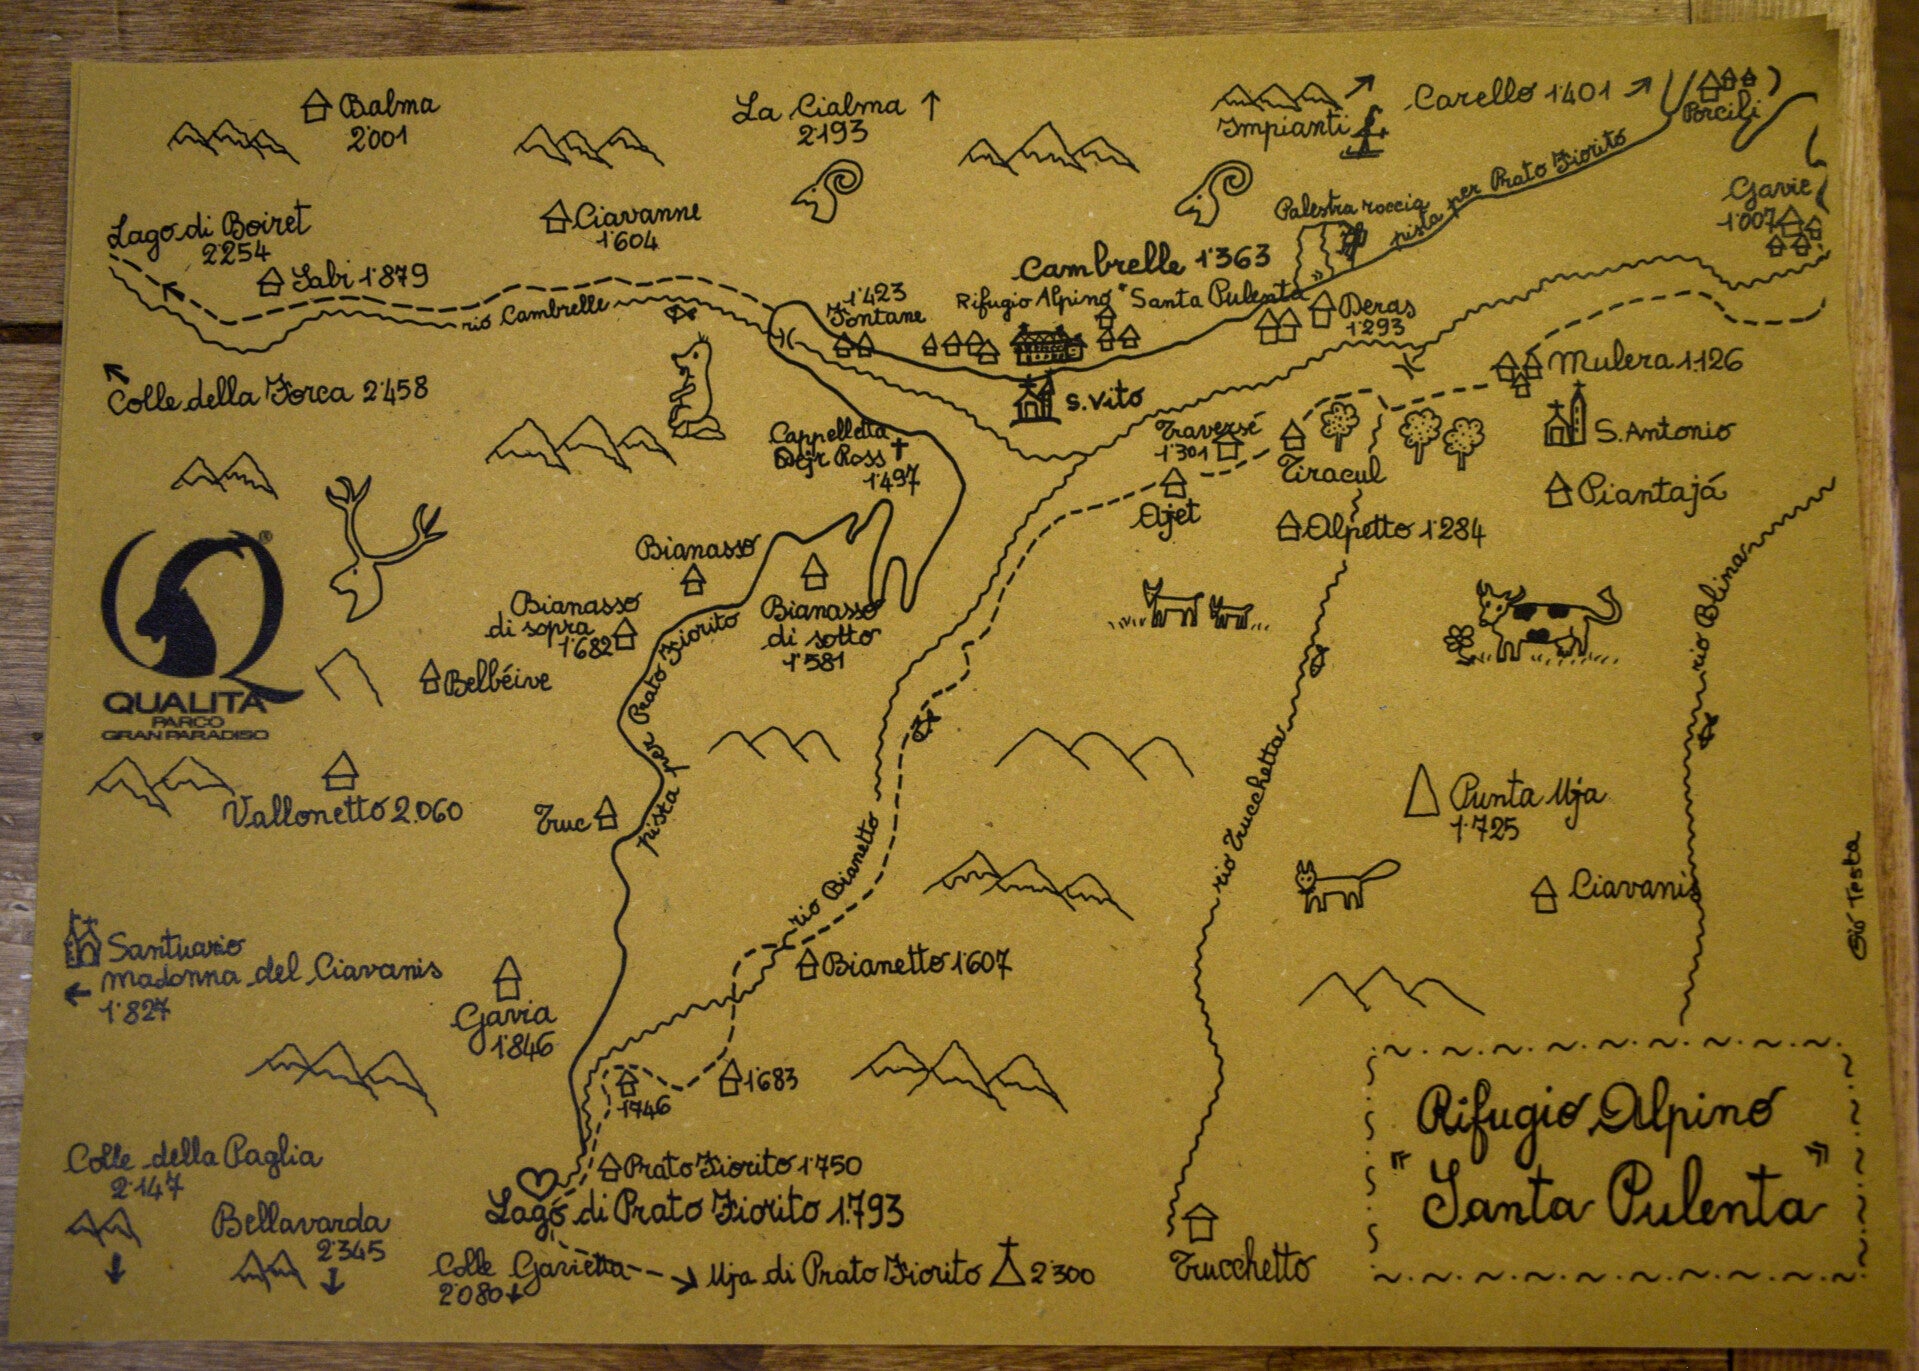 Balma
2'001
La Cialma ↑
2193
Impianti
Carello 1'401
Porcili
Lago di Boiret
2'254
Ciavanne
1'604
Sabi 1'879
Palestra roccia
pista per Prato Fiorito
Gavie
1'007
Cambrelle 1'363
Rifugio Alpino "Santa Pulenta"
1'423
Fontane
Deras
1'293
rio Cambrelle
Colle della Forca 2'458
S. Vito
Mulera 1.126
S. Antonio
Cappelletta
Dejr Ross
1'497
Traversé
1'301
Tiracul
Ajet
Piantajá
Alpetto 1'284
Bianasso
Bianasso
di sopra
1'682
Bianasso
di sotto
1'581
Belbéive
QUALITÀ
PARCO
GRAN PARADISO
®
pista per Prato Fiorito
rio Blina
rio Trucchetta
Vallonetto 2.060
Truc
Punta Uja
1'725
rio Bianetto
Ciavanis
Giò Testa
Santuario
madonna del Ciavanis
1'827
Bianetto 1'607
Gavia
1'846
1'683
1746
Colle della Paglia
2'147
Prato Fiorito 1'750
Lago di Prato Fiorito 1.793
Bellavarda
2'345
Colle Gavietta
2'080
Uja di Prato Fiorito 2'300
Trucchetto
Rifugio Alpino
"Santa Pulenta"